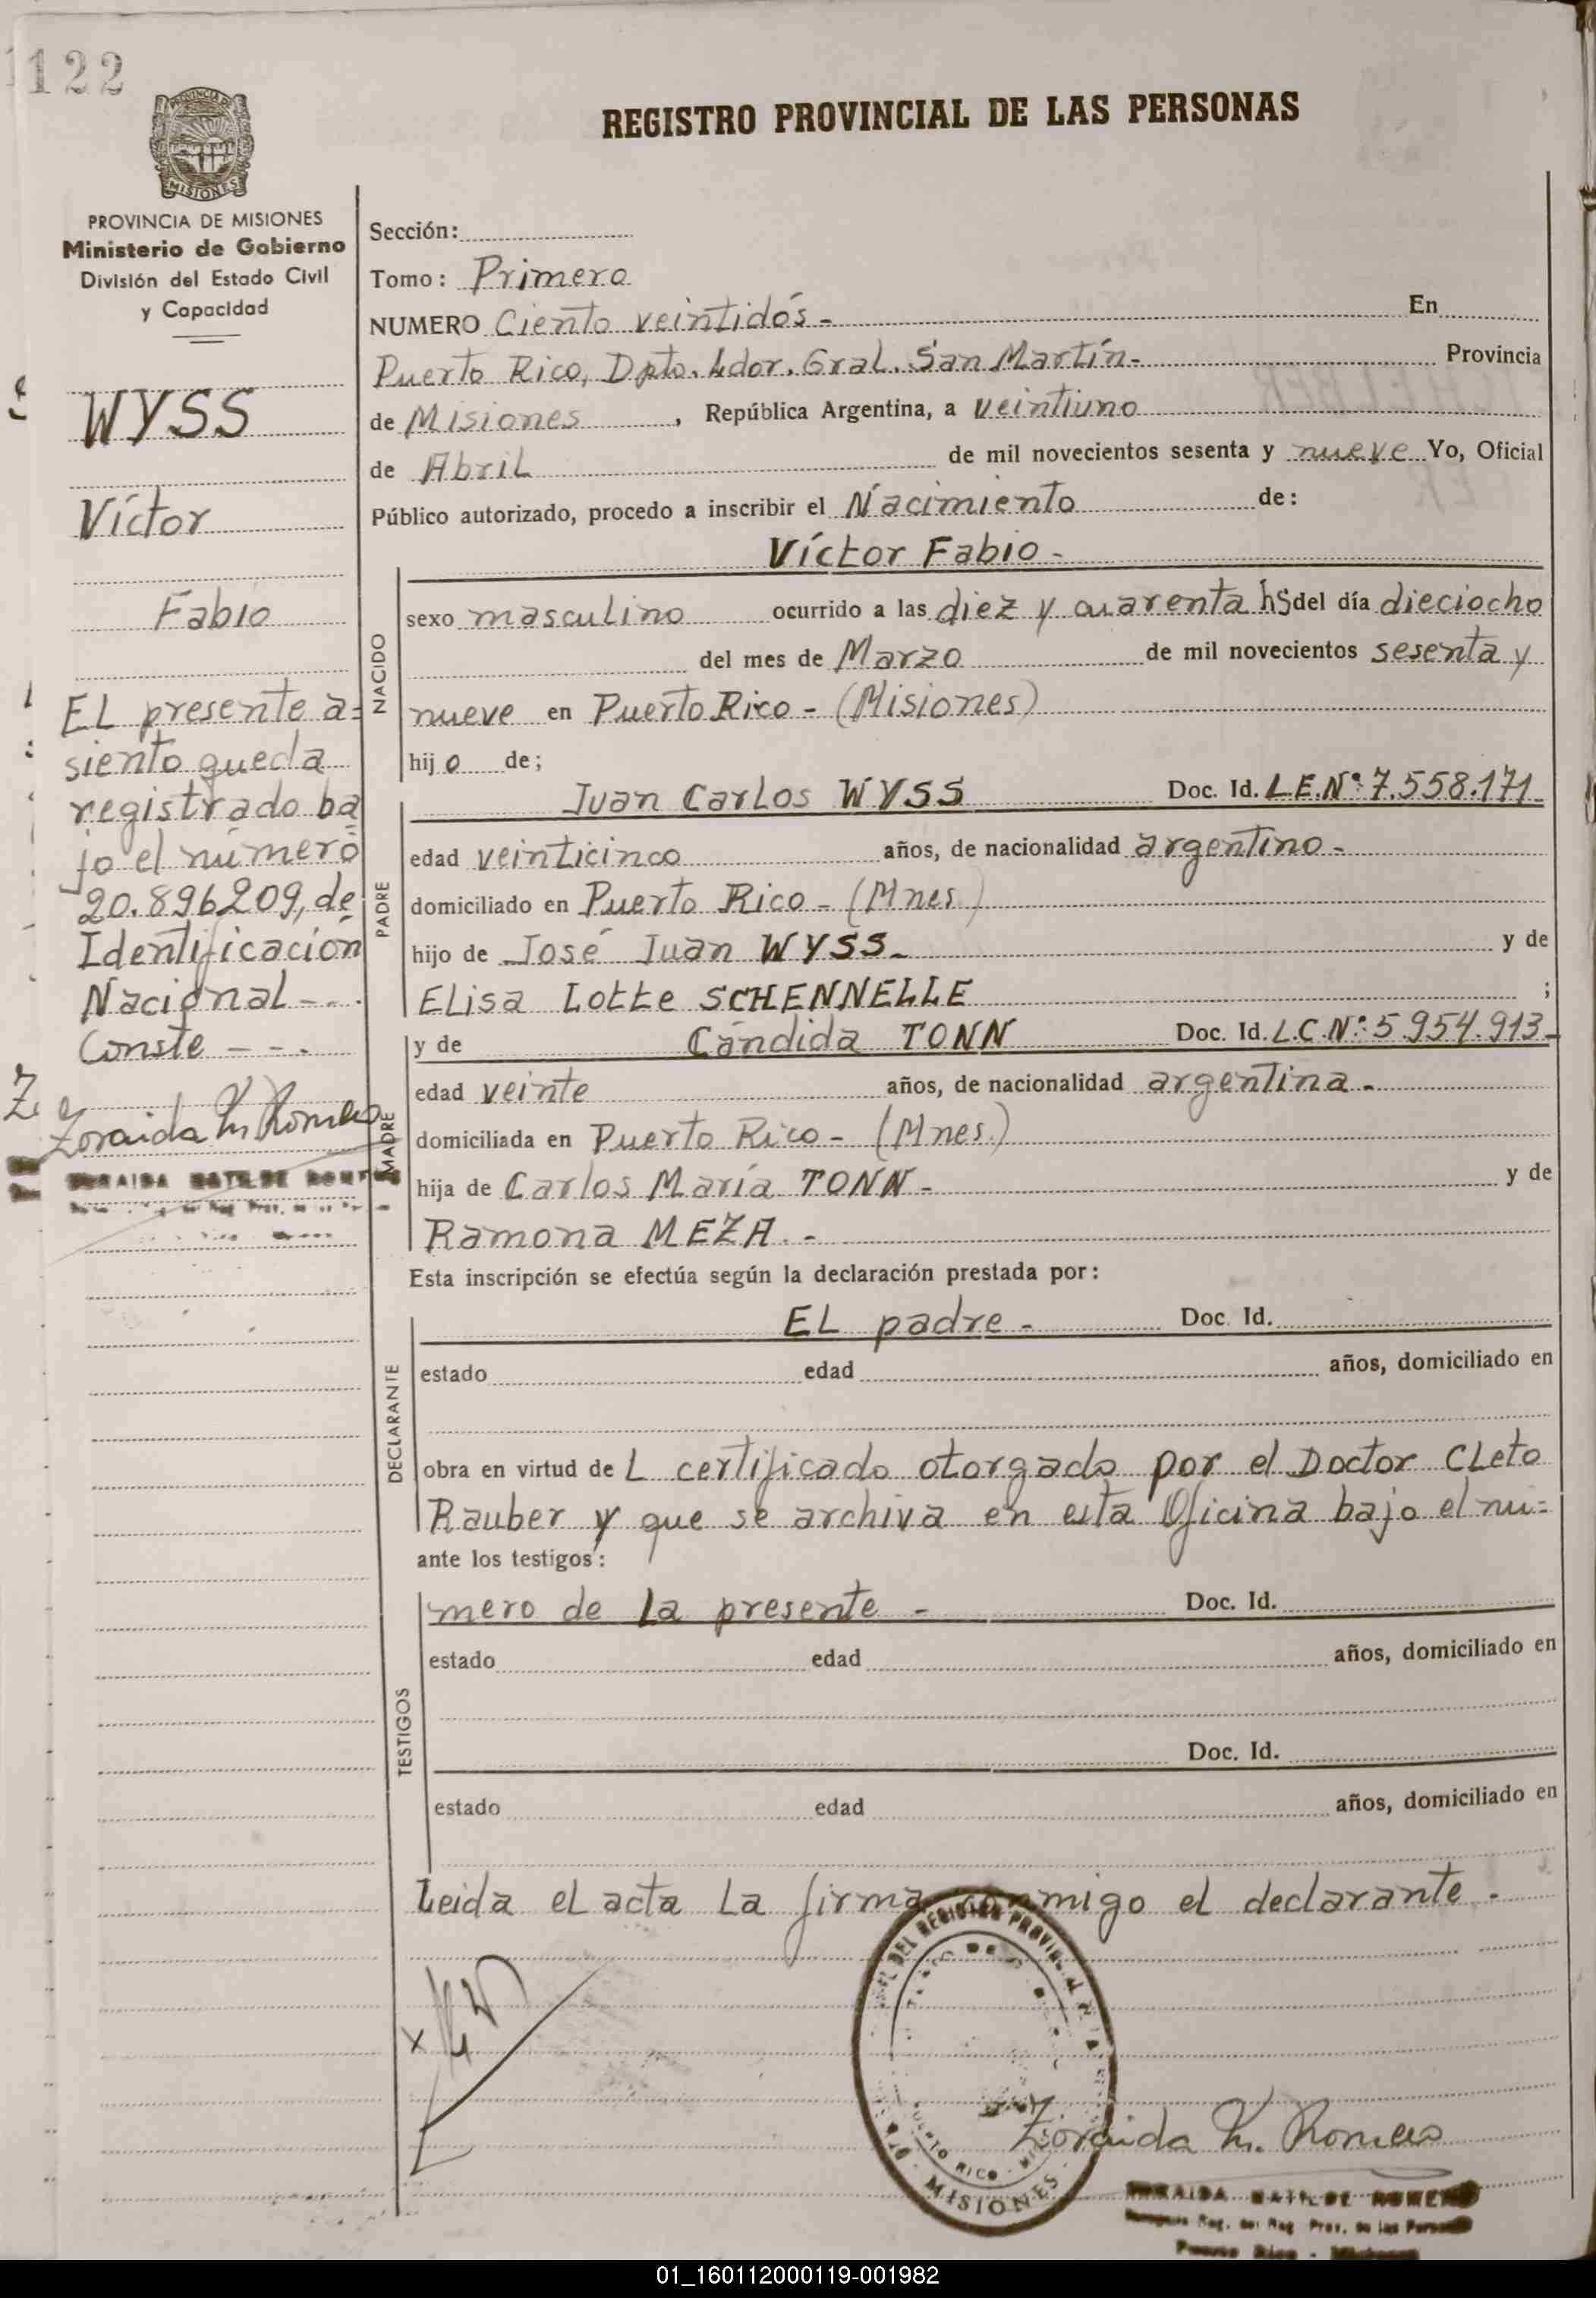 122
PROVINCIA DE MISIONES
Ministerio de Gobierno
División del Estado Civil
y Capacidad
WYSS
Víctor
Fabio
EL presente a=
siento queda
registrado ba
jo el número
20.896209, de
Identificación
Nacional - - .
Conste - - .
Zoraida M. Romero
ZORAIDA MATILDE ROMERO
REGISTRO PROVINCIAL DE LAS PERSONAS
Sección:
Tomo: Primero
NUMERO Ciento veintidós - En
Puerto Rico, Dpto. Ldor. Gral. San Martín - Provincia
de Misiones, República Argentina, a veintiuno
de Abril de mil novecientos sesenta y nueve Yo, Oficial
Público autorizado, procedo a inscribir el Nacimiento de:
Víctor Fabio -
NACIDO
sexo masculino ocurrido a las diez y cuarenta hs del día dieciocho
del mes de Marzo de mil novecientos sesenta y
nueve en Puerto Rico - (Misiones)
hijo de;
PADRE
Juan Carlos WYSS Doc. Id. L.E.Nº: 7.558.171 -
edad veinticinco años, de nacionalidad argentino -
domiciliado en Puerto Rico - (Mnes)
hijo de José Juan WYSS - y de
Elisa Lotte SCHENNELLE ;
MADRE
y de Cándida TONN Doc. Id. L.C.Nº: 5.954.913 -
edad veinte años, de nacionalidad argentina -
domiciliada en Puerto Rico - (Mnes.)
hija de Carlos María TONN - y de
Ramona MEZA. -
Esta inscripción se efectúa según la declaración prestada por:
DECLARANTE
EL padre - Doc. Id.
estado edad años, domiciliado en
obra en virtud de L certificado otorgado por el Doctor Cleto
Rauber y que se archiva en esta Oficina bajo el nú=
ante los testigos:
TESTIGOS
mero de la presente - Doc. Id.
estado edad años, domiciliado en
Doc. Id.
estado edad años, domiciliado en
Leida el acta la firma conmigo el declarante -
DEL REGISTRO
PUERTO RICO
MISIONES
Zoraida M. Romero
ZORAIDA MATILDE ROMERO
Reg. Prov. de las Personas
Puerto Rico - Misiones
01_160112000119-001982